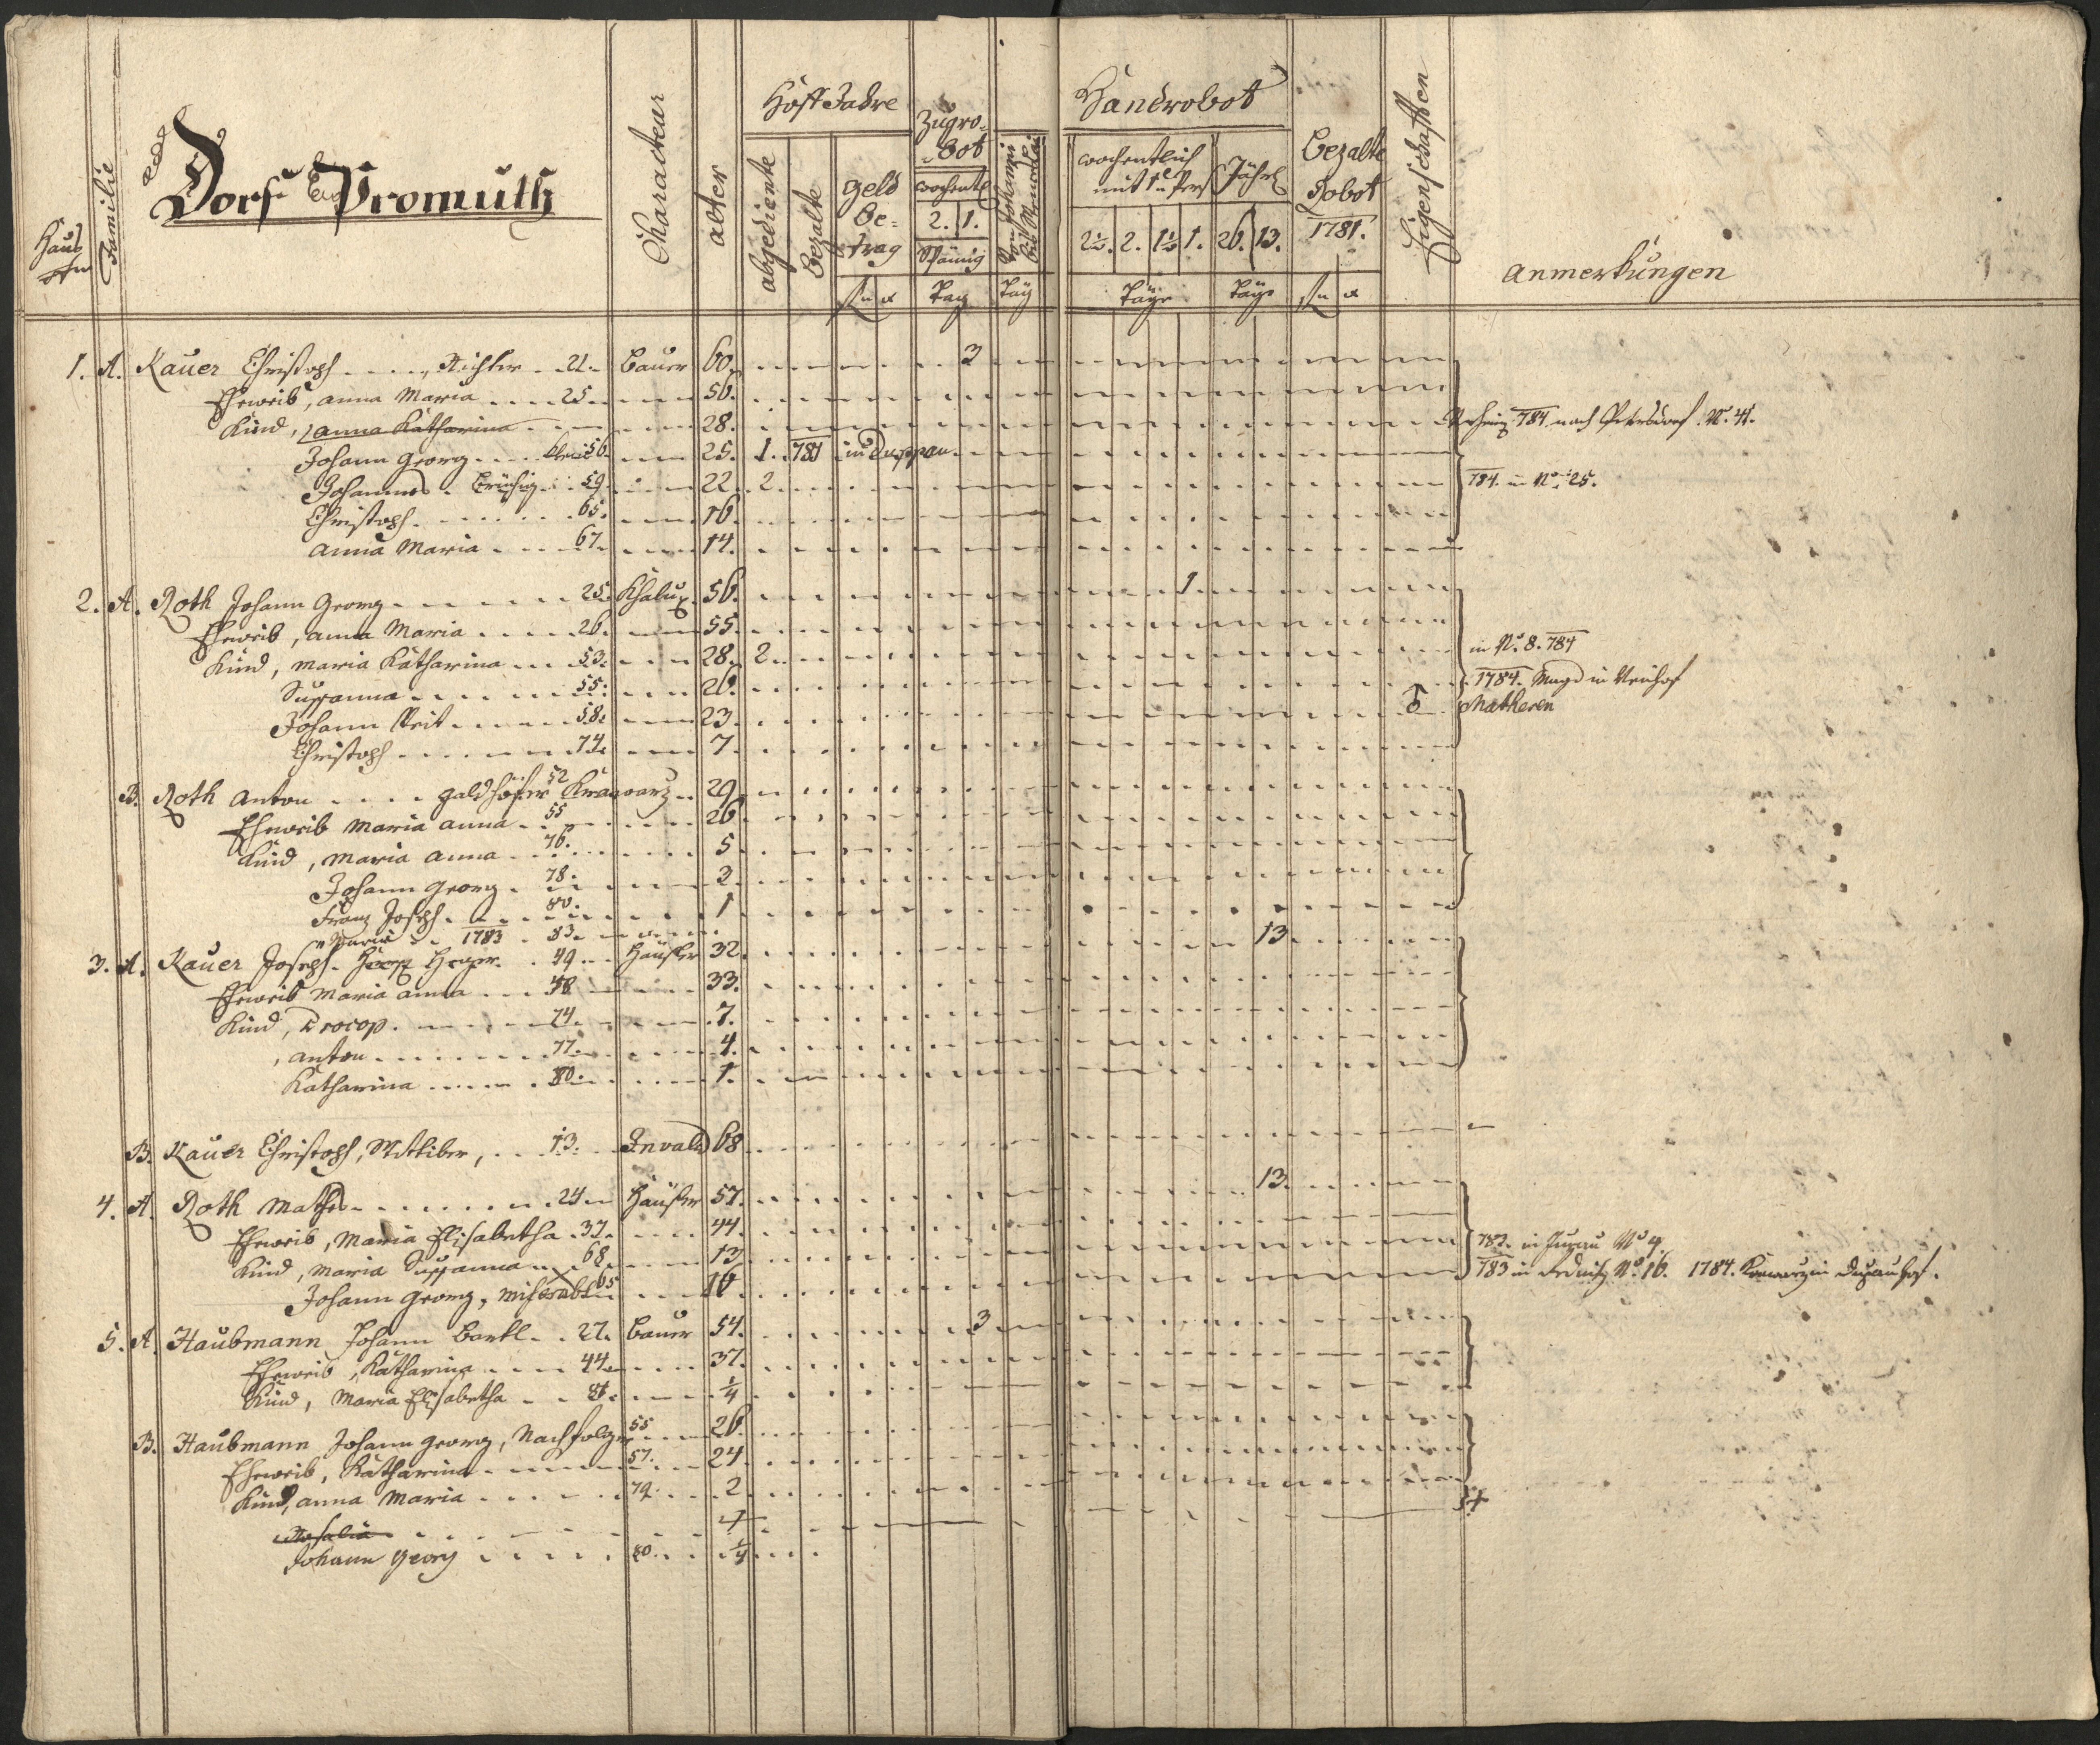 Dorf Promuth
Haus
Familie
Characteur
alter
Hoff Jahre
abgediente
bezalte
geld
be=
trag
Zugro=
=bot
wochentl
2. 1.
Spänig
Tag
Tag
Handrobot
wochentlich
mit 1 Pers
Jährl
2½. 2. 1½ 1. 26. 13.
Täge Täge
bezalte
Robot
1781.
Eigenschafften
anmerkungen
1. A. Kauer Christoph Richter 21. Bauer 60. 3
Eheweib, anna Maria 25. 56.
Kind, anna Katharina 28. 784 nach Petersdorf. No. 41.
Johann Georg 56. 25. 1. 781 in
Johannes 59. 22. 2. 784. in No. 25.
Christoph 65. 16.
anna Maria 67. 14.
2. A. Roth Johann Georg 25. Chalup 56. 1
Eheweib, anna Maria 26. 55.
Kind, maria Katharina 53. 28. 2. in No. 8. 784
Susanna 55. 26. 1784. Magd in Neuhof
Johann Veit 58. 23.
Christoph 74. 7.
B. Roth Anton 52 29.
Eheweib Maria anna 55 26.
Kind, Maria anna 76. 5
Johann Georg 78. 3
Franz Joseph 80. 1
Maria 1783 83.
3. A. Kauer Joseph Heger 49 Häusler 32. 13
Eheweib Maria anna 48 33.
Kind, Procop 74. 7.
anton 77. 4.
Katharina 80. 1.
B. Kauer Christoph, Wittiber, 13. Invalid 68
4. A. Roth Mathes 24 Häusler 57. 13.
Eheweib, Maria Elisabetha 37. 44.
Kind, Maria Susanna 68 13. 783. in No 4.
Johann Georg, miserabl 65 16 783 in No. 16. 1784.
5. A. Haubmann Johann Bartl 27. Bauer 54. 3
Eheweib, Katharina 44. 37.
Kind, Maria Elisabetha 81. ¼
B. Haubmann Johann Georg, Nachfolger 55 26.
Eheweib, Katharina 57. 24
Kind, anna Maria 79. 2
Rosalia +
Johann Georg 80. ¼